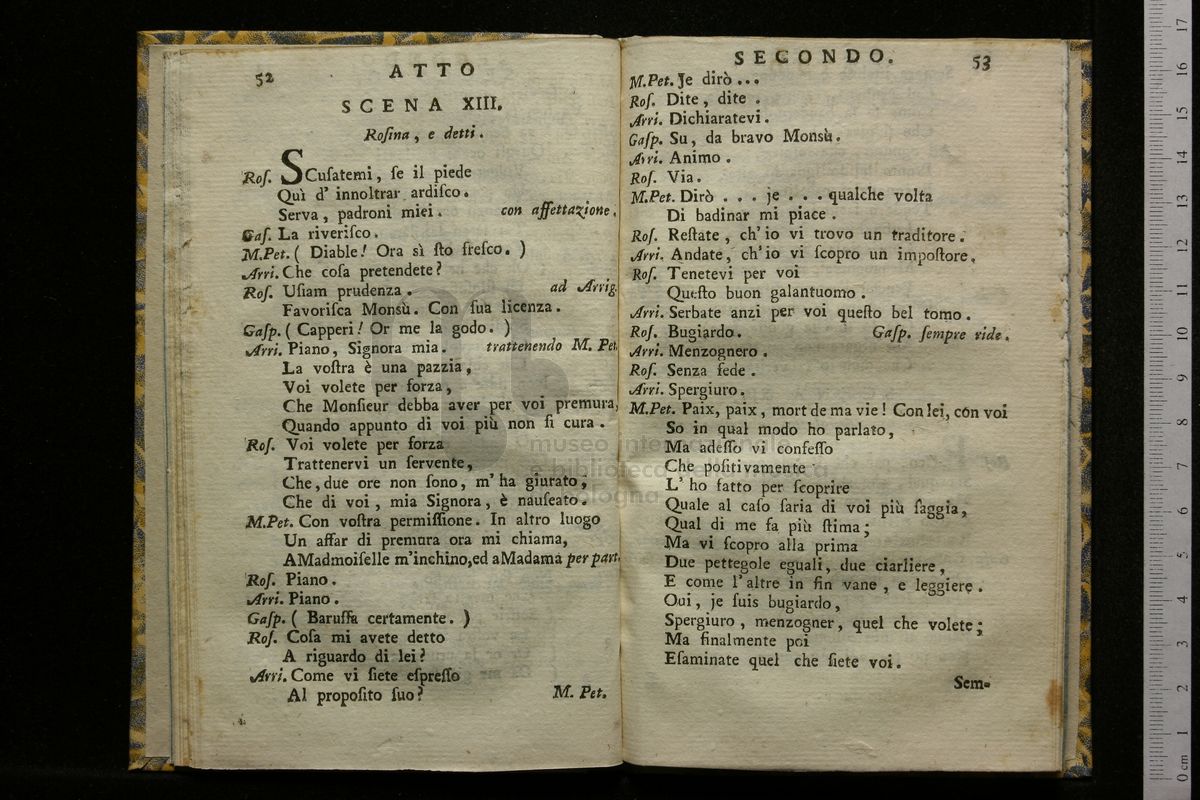 52
ATTO
SCENA XIII.
Roſina, e detti.
Roſ. SCuſatemi, ſe il piede
Quì d' innoltrar ardiſco.
Serva, padroni miei. con affettazione.
Gaſ. La riveriſco.
M.Pet. ( Diable! Ora sì ſto freſco. )
Arri. Che coſa pretendete?
Roſ. Uſiam prudenza. ad Arrig.
Favoriſca Monsù. Con ſua licenza.
Gaſp. ( Capperi! Or me la godo. )
Arri. Piano, Signora mia. trattenendo M. Pet.
La voſtra è una pazzia,
Voi volete per forza,
Che Monſieur debba aver per voi premura,
Quando appunto di voi più non ſi cura.
Roſ. Voi volete per forza
Trattenervi un ſervente,
Che, due ore non ſono, m' ha giurato,
Che di voi, mia Signora, è nauſeato.
M.Pet. Con voſtra permiſſione. In altro luogo
Un affar di premura ora mi chiama,
A Madmoiſelle m'inchino, ed a Madama per part.
Roſ. Piano.
Arri. Piano.
Gaſp. ( Baruffa certamente. )
Roſ. Coſa mi avete detto
A riguardo di lei?
Arri. Come vi ſiete eſpreſſo
Al propoſito ſuo?
M. Pet.
SECONDO.
53
M.Pet. Je dirò ...
Roſ. Dite, dite.
Arri. Dichiaratevi.
Gaſp. Su, da bravo Monsù.
Arri. Animo.
Roſ. Via.
M.Pet. Dirò . . . je . . . qualche volta
Di badinar mi piace.
Roſ. Reſtate, ch'io vi trovo un traditore.
Arri. Andate, ch'io vi ſcopro un impoſtore.
Roſ. Tenetevi per voi
Queſto buon galantuomo.
Arri. Serbate anzi per voi queſto bel tomo.
Roſ. Bugiardo. Gaſp. ſempre ride.
Arri. Menzognero.
Roſ. Senza fede.
Arri. Spergiuro.
M.Pet. Paix, paix, mort de ma vie! Con lei, con voi
So in qual modo ho parlato,
Ma adeſſo vi confeſſo
Che poſitivamente
L' ho fatto per ſcoprire
Quale al caſo ſaria di voi più ſaggia,
Qual di me fa più ſtima;
Ma vi ſcopro alla prima
Due pettegole eguali, due ciarliere,
E come l'altre in fin vane, e leggiere.
Oui, je ſuis bugiardo,
Spergiuro, menzogner, quel che volete;
Ma finalmente poi
Eſaminate quel che ſiete voi.
Sem-
museo internazionale
e biblioteca della musica
bologna
0 cm 1 2 3 4 5 6 7 8 9 10 11 12 13 14 15 16 17